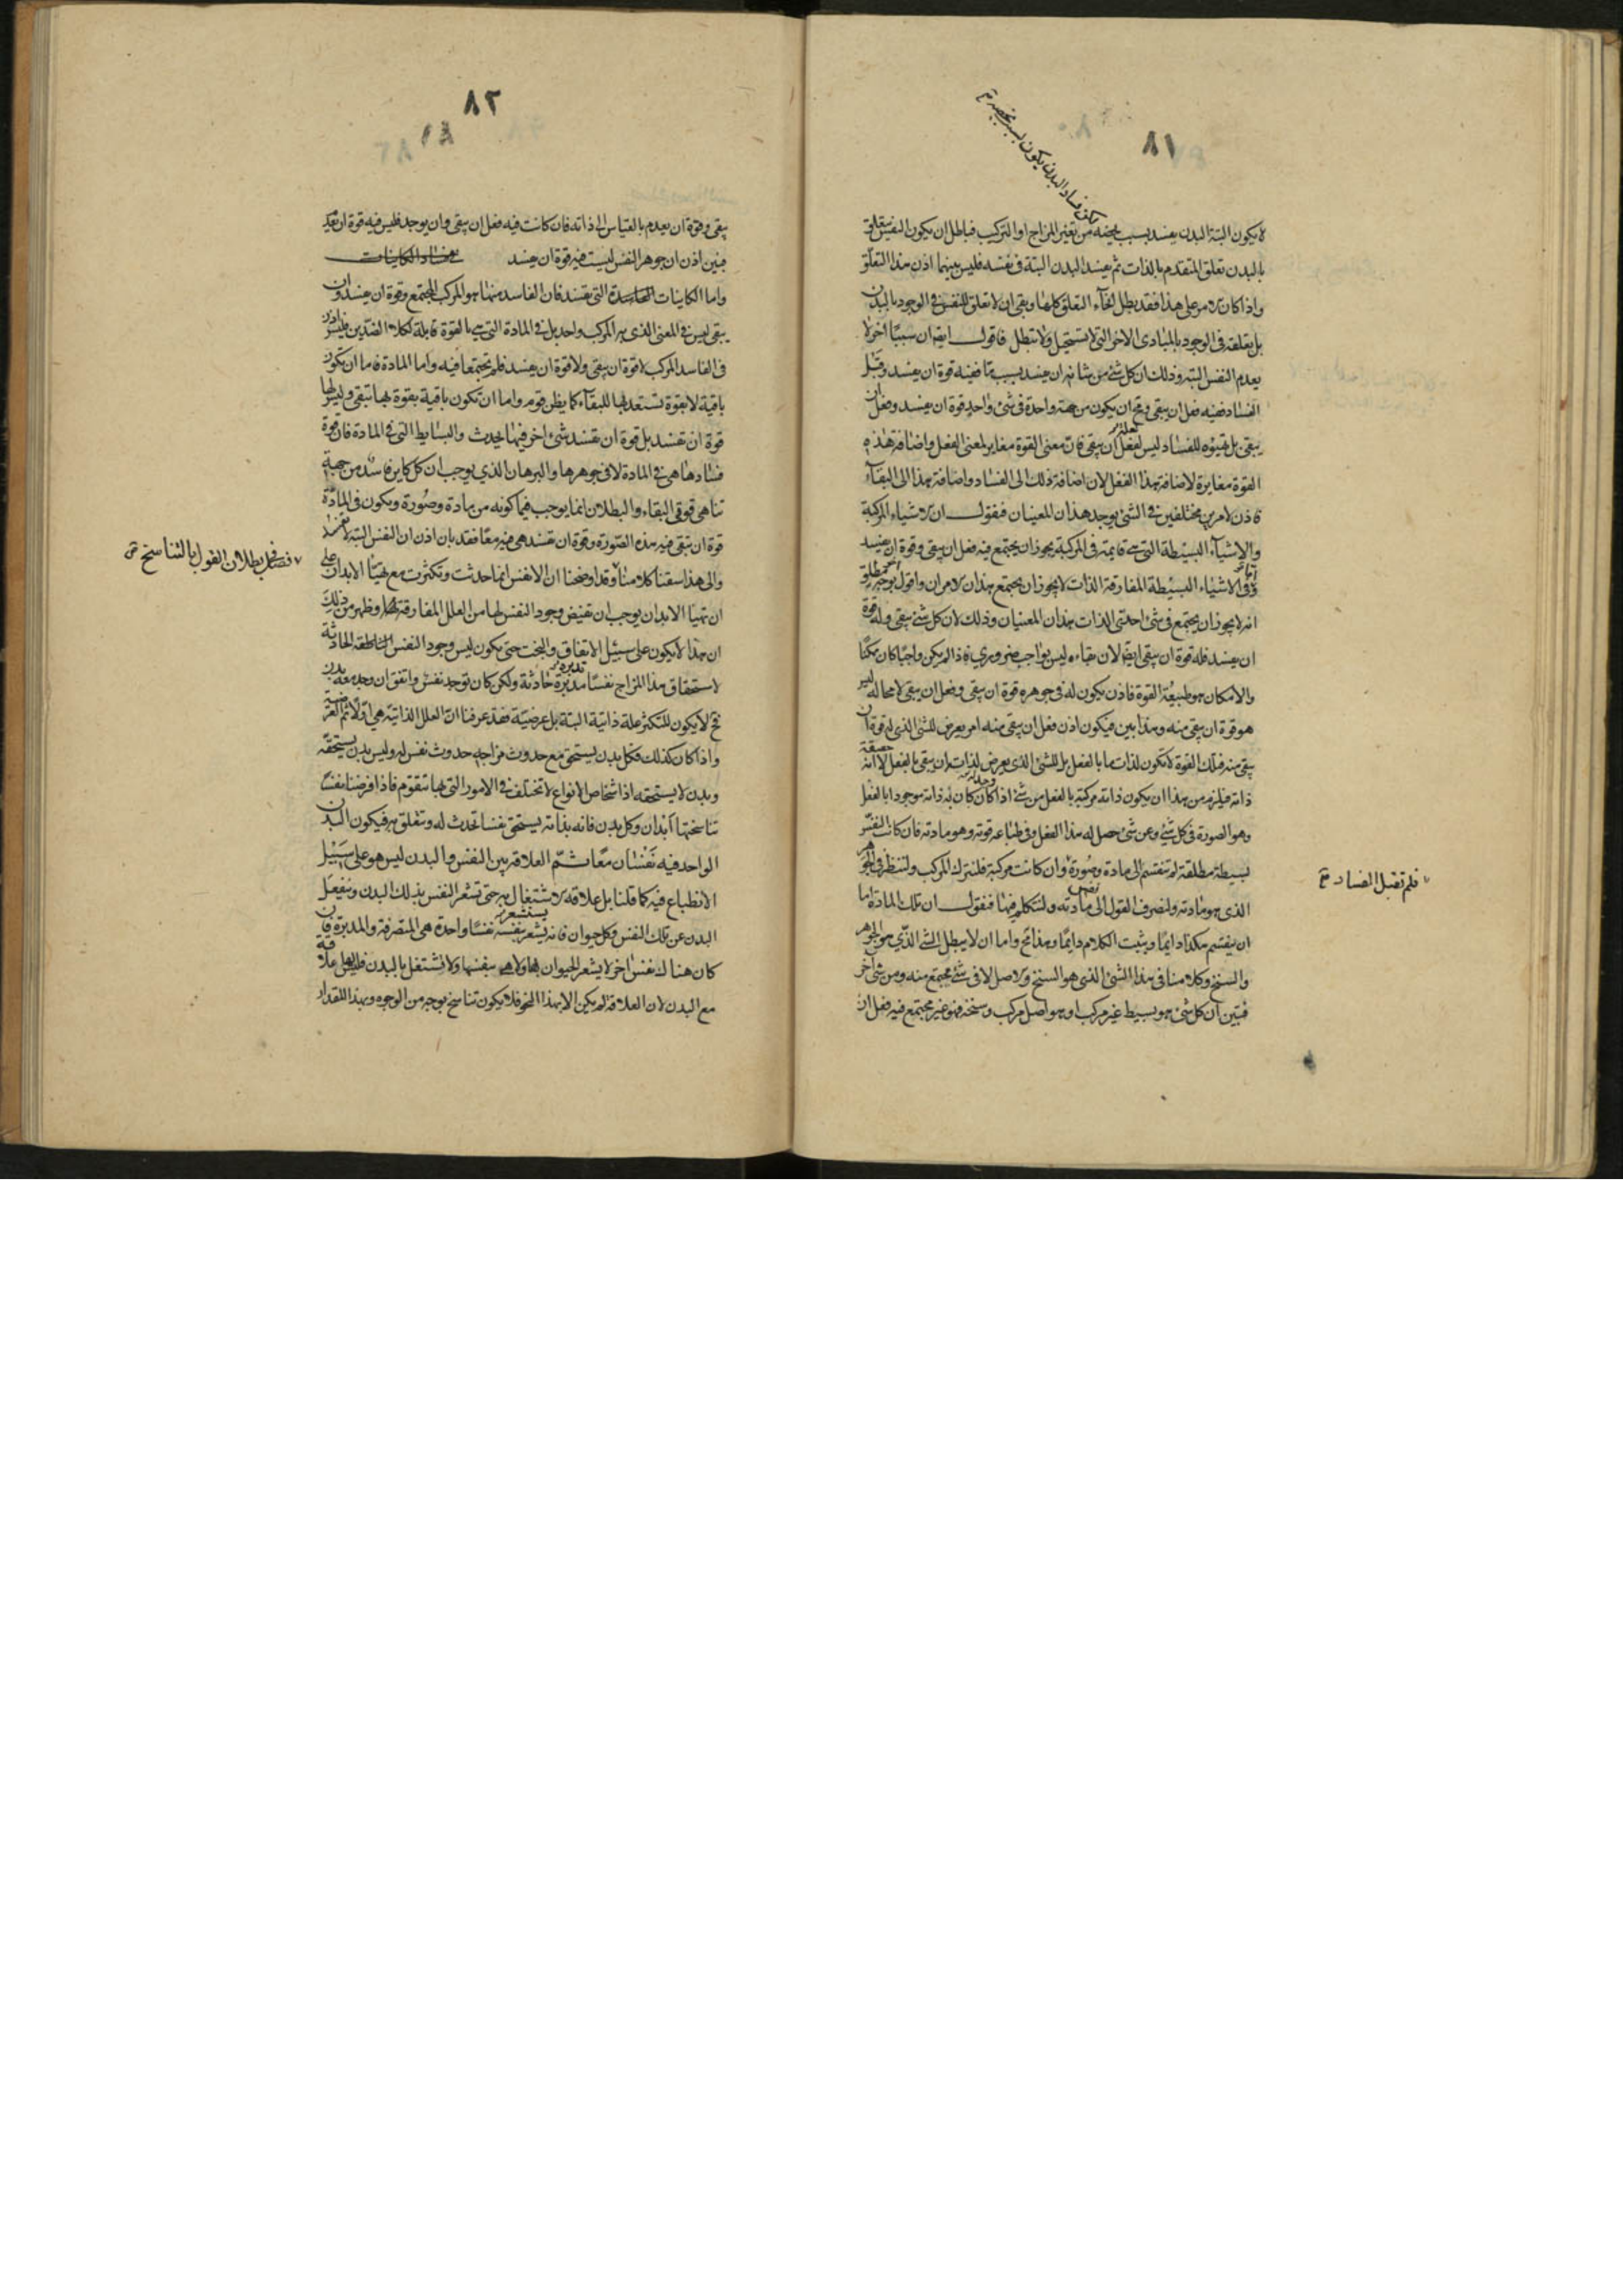 ٨١
لكن فساد البدن يكون بسبب يخصه
لا يكون البتة البدن يفسد بسبب يخصه من تغير المزاج او التركيب فباطل ان يكون النفس يتعلق
بالبدن تعلق المتقدم بالذات ثم يفسد البدن البتة فى نفسه فليس بينهما اذن هذا التعلق
واذا كان الامر على هذا فقد بطل انحآء التعلق كلها وبقى ان لا تعلق للنفس فى الوجود بالبدن
بل تعلقه فى الوجود بالمبادى الاخر التى لا تستحيل ولا تبطل فاقول ايضا ان سببًا اخر لا
يعدم النفس البته وذلك ان كل شئ من شانه ان يفسد بسبب ما ففيه قوة ان يفسد وقبل
الفساد ففيه فعل ان يبقى ومح ان يكون من جهة واحدة فى شئ واحد قوة ان يفسد وفعل ان
يبقى بل تهيؤه للفساد ليس لفعله ان يبقى فان معنى القوة مغاير لمعنى الفعل واضافة هذه
القوة مغايرة لاضافة هذا الفعل لان اضافة ذلك الى الفساد واضافة هذا الى البقآء
فاذن لامرين مختلفين فى الشئ يوجد هذان المعنيان فنقول ان الاشياء المركبة
والاشيآء البسيطة التى هى قايمة فى المركبة يجوز ان يجتمع فيه فعل ان يبقى وقوة ان يفسد
وفى الاشياء البسيطة المفارقة الذات لا يجوز ان يجتمع هذان الامران واقول بوجه مطلق
انه لا يجوز ان يجتمع فى شئ احدى الذات هذان المعنيان وذلك لان كل شئ يبقى وله قوة
ان يفسد فله قوة ان يبقى ايضا لان بقاءه ليس بواجب ضرورى فاذا لم يكن واجبًا كان ممكنًا
والامكان هو طبيعة القوة فاذن يكون له فى جوهره قوة ان يبقى وفعل ان يبقى لا محالة ليس
هو قوة ان يبقى منه وهذا بين فيكون اذن فعل ان يبقى منه امر يعرض للشئ الذى له قوة ان
يبقى منه فتلك القوة لا تكون لذات ما بالفعل بل للشئ الذى يعرض لذاته ان يبقى بالفعل لا انه حقيقة
ذاته فيلزم من هذا ان يكون ذاته مركبة بالفعل من شئ اذا كان كان به ذاته موجودا بالفعل
وهو الصورة فى كل شئ وعن شئ حصل له هذا الفعل وفى طباعه قوته وهو مادته فان كانت النفس
بسيطة مطلقة لم تنقسم الى مادة وصورة وان كانت مركبة فلنترك المركب ولننظر فى الجوهر
الذى هو مادته ولنصرف القول الى نفس مادته ولنتكلم فيها فنقول ان تلك المادة اما
ان ينقسم هكذا دايمًا ويثبت الكلام دايمًا وهذا مح واما ان لا يبطل الشئ الذى هو الجوهر
والسنخ وكلامنا فى هذا الشئ الذى هو السنخ والاصل لا فى شئ مجتمع منه ومن شئ اخر
فتبين ان كل شئ هو بسيط غير مركب او هو اصل مركب وسنخه فهو غير مجتمع فيه فعل ان
فلم تقبل الفساد
٨٢
يبقى وقوة ان يعدم بالقياس الى ذاته فان كانت فيه فعل ان يبقى وان يوجد فليس فيه قوة ان تعد
فبين اذن ان جوهر النفس ليست فيه قوة ان يفسد
واما الكاينات الفاسدة التى تفسد فان الفاسد منها هو المركب المجتمع وقوة ان يفسد وان
يبقى ليس فى المعنى الذى به المركب واحد بل فى المادة التى هى بالقوة قابلة لكلا الضدين فليس اذن
فى الفاسد المركب لا قوة ان يبقى ولا قوة ان يفسد فلم تجتمعا فيه واما المادة فاما ان تكون
باقية لا بقوة تستعد بها للبقآء كما يظن قوم واما ان تكون باقية بقوة بها تبقى وليس لها
قوة ان تفسد بل قوة ان تفسد شئ اخر فيها يحدث والبسايط التى فى المادة فان قوة
فسادها هى فى المادة لا فى جوهرها والبرهان الذى يوجب ان كل كاين فاسد من جهة
تناهى قوتى البقاء والبطلان انما يوجب فيما كونه من مادة وصورة ويكون فى المادة
قوة ان تبقى فيه هذه الصورة وقوة ان تفسد هى فيه معًا فقد بان اذن ان النفس البته لا تفسد
والى هذا سقنا كلامنا وقد اوضحنا ان الانفس انما حدثت وتكثرت مع تهيئا الابدان على
ان تهيئا الابدان يوجب ان تفيض وجود النفس لها من العلل المفارقة وظهر من ذلك
ان هذا لا يكون على سبيل الاتفاق والبخت حتى يكون ليس وجود النفس الحادثة
لاستحقاق هذا المزاج نفسًا مدبرة حادثة ولكن كان توجد نفس واتفق ان وجد معه بدن
فح لا يكون للتكثر علة ذاتية البتة بل عرضية فقد عرفنا ان العلل الذاتية هى اولا ثم العرضية
واذا كان كذلك فكل بدن يستحق مع حدوث مزاجه حدوث نفس له وليس بدن يستحقه
وبدن لا يستحقه اذ اشخاص الانواع لا تختلف فى الامور التى بها تتقوم فاذا فرضنا نفسًا
تناسختها ابدان وكل بدن فانه بذاته يستحق نفسا تحدث له وتتعلق به فيكون البدن
الواحد فيه نفسان معًا ثم العلاقة بين النفس والبدن ليس هو على سبيل
الانطباع فيه كما قلنا بل علاقة الاشتغال به حتى تشعر النفس بذلك البدن وينفعل
البدن عن تلك النفس وكل حيوان فانه يستشعر نفسه نفسًا واحدة هى المتصرفة والمدبرة فان
كان هناك نفس اخر لا يشعر الحيوان بها ولا هى بنفسها ولا تشتغل بالبدن فليس لها علاقة
مع البدن لان العلاقة لم يكن الا بهذا النحو فلا يكون تناسخ بوجه من الوجوه وبهذا المقدار
فصل فى بطلان القول بالتناسخ